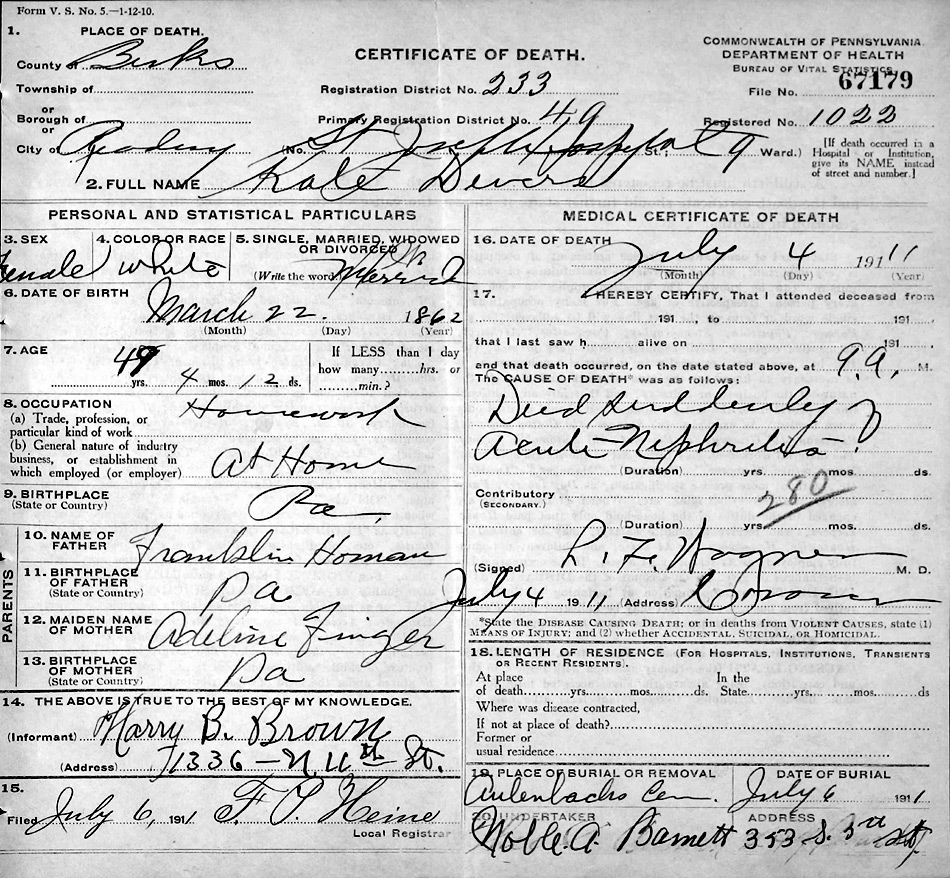 Form V. S. No. 5.—1-12-10.
1. PLACE OF DEATH.
County of Berks
Township of
or
Borough of
or
City of Reading
CERTIFICATE OF DEATH.
Registration District No. 233
Primary Registration District No. 49
(No. St Joseph Hospital St.; 9 Ward.)
COMMONWEALTH OF PENNSYLVANIA.
DEPARTMENT OF HEALTH
BUREAU OF VITAL STATISTICS
File No. 67179
Registered No. 1022
[If death occurred in a
Hospital or Institution,
give its NAME instead
of street and number.]
2. FULL NAME Kate Devers
PERSONAL AND STATISTICAL PARTICULARS
3. SEX
Female
4. COLOR OR RACE
White
5. SINGLE, MARRIED, WIDOWED
OR DIVORCED
(Write the word) Married
6. DATE OF BIRTH
March 22. 1862
(Month) (Day) (Year)
7. AGE
49 yrs. 4 mos. 12 ds.
If LESS than 1 day
how many........hrs. or
........min.?
8. OCCUPATION
(a) Trade, profession, or
particular kind of work Housework
(b) General nature of industry
business, or establishment in
which employed (or employer) At Home
9. BIRTHPLACE
(State or Country) Pa.
PARENTS
10. NAME OF
FATHER Franklin Homan
11. BIRTHPLACE
OF FATHER
(State or Country) Pa
12. MAIDEN NAME
OF MOTHER Adeline Finger
13. BIRTHPLACE
OF MOTHER
(State or Country) Pa
14. THE ABOVE IS TRUE TO THE BEST OF MY KNOWLEDGE.
(Informant) Harry B. Brown
(Address) 1336 - N 11th St.
15.
Filed July 6, 1911 F. P. Heine
Local Registrar
MEDICAL CERTIFICATE OF DEATH
16. DATE OF DEATH
July 4 1911
(Month) (Day) (Year)
17. I HEREBY CERTIFY, That I attended deceased from
191 , to 191
that I last saw h alive on 191
and that death occurred, on the date stated above, at 9 A. M.
The CAUSE OF DEATH* was as follows:
Died suddenly of
Acute Nephritis
(Duration) yrs. mos. ds.
Contributory
(SECONDARY.)
280
(Duration) yrs. mos. ds.
(Signed) L. F. Wagner M. D.
July 4 1911 (Address) Coroner
*State the DISEASE CAUSING DEATH; or in deaths from VIOLENT CAUSES, state (1)
MEANS OF INJURY; and (2) whether ACCIDENTAL, SUICIDAL, OR HOMICIDAL.
18. LENGTH OF RESIDENCE (FOR HOSPITALS, INSTITUTIONS, TRANSIENTS
OR RECENT RESIDENTS).
At place In the
of death........yrs........mos........ds. State........yrs........mos........ds
Where was disease contracted,
If not at place of death?
Former or
usual residence
19. PLACE OF BURIAL OR REMOVAL
Aulenbachs Cem.
DATE OF BURIAL
July 6 1911
20. UNDERTAKER
Noble A. Barnett
ADDRESS
353 S. 5th St.